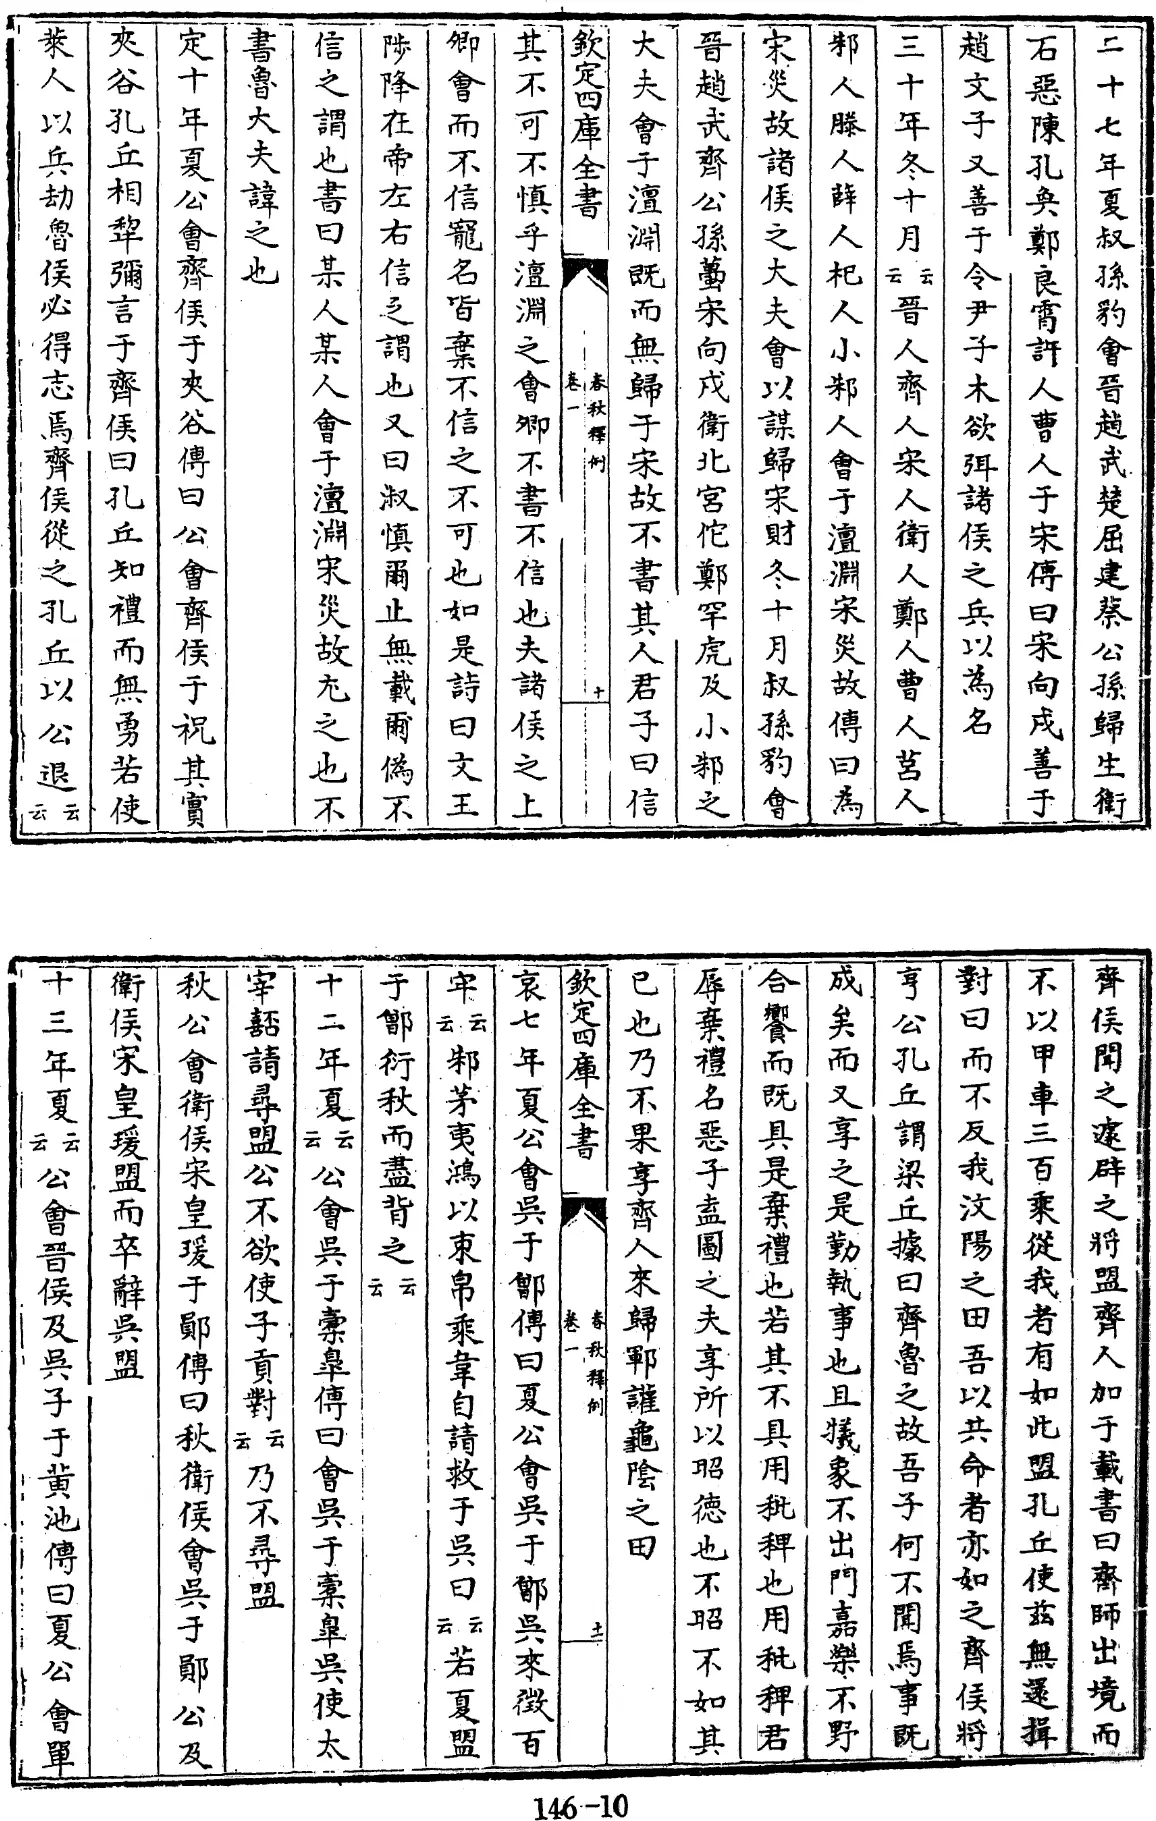 二十七年夏叔孫豹會晉趙武楚屈建蔡公孫歸生衛
石惡陳孔奐鄭良霄許人曹人于宋傳曰宋向戌善于
趙文子又善于令尹子木欲弭諸侯之兵以為名
三十年冬十月云云晉人齊人宋人衛人鄭人曹人莒人
邾人滕人薛人杞人小邾人會于澶淵宋災故傳曰為
宋災故諸侯之大夫會以謀歸宋財冬十月叔孫豹會
晉趙武齊公孫蠆宋向戌衛北宮佗鄭罕虎及小邾之
大夫會于澶淵既而無歸于宋故不書其人君子曰信
欽定四庫全書
春秋釋例
卷一
十
其不可不慎乎澶淵之會卿不書不信也夫諸侯之上
卿會而不信寵名皆棄不信之不可也如是詩曰文王
陟降在帝左右信之謂也又曰淑慎爾止無載爾偽不
信之謂也書曰某人某人會于澶淵宋災故尤之也不
書魯大夫諱之也
定十年夏公會齊侯于夾谷傳曰公會齊侯于祝其實
夾谷孔丘相犂彌言于齊侯曰孔丘知禮而無勇若使
萊人以兵劫魯侯必得志焉齊侯從之孔丘以公退云云
齊侯聞之遽辟之將盟齊人加于載書曰齊師出境而
不以甲車三百乘從我者有如此盟孔丘使兹無還揖
對曰而不反我汶陽之田吾以共命者亦如之齊侯將
亨公孔丘謂梁丘據曰齊魯之故吾子何不聞焉事既
成矣而又享之是勤執事也且犧象不出門嘉樂不野
合饗而既具是棄禮也若其不具用秕稗也用秕稗君
辱棄禮名惡子盍圖之夫享所以昭德也不昭不如其
已也乃不果享齊人來歸鄆讙龜陰之田
欽定四庫全書
春秋釋例
卷一
十一
哀七年夏公會吳于鄫傳曰夏公會吳于鄫吳來徵百
牢云云邾茅夷鴻以束帛乘韋自請救于吳曰云云若夏盟
于鄫衍秋而盡背之云云
十二年夏云云公會吳于橐臯傳曰會吳于橐臯吳使太
宰嚭請尋盟公不欲使子貢對云云乃不尋盟
秋公會衛侯宋皇瑗于鄖傳曰秋衛侯會吳于鄖公及
衛侯宋皇瑗盟而卒辭吳盟
十三年夏云云公會晉侯及吳子于黄池傳曰夏公會單
146-10